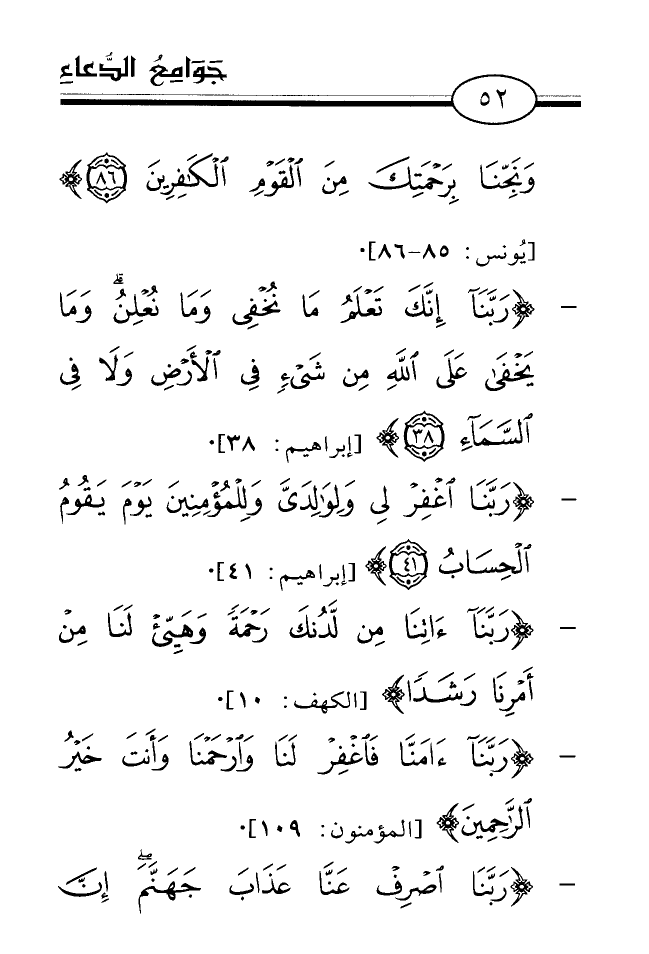 جَوَامِعُ الدُّعَاءِ
٥٢
وَنَجِّنَا بِرَحْمَتِكَ مِنَ ٱلْقَوْمِ ٱلْكَٰفِرِينَ ٨٦ ﴾
[يُونس: ٨٥-٨٦].
- ﴿رَبَّنَآ إِنَّكَ تَعْلَمُ مَا نُخْفِى وَمَا نُعْلِنُ ۗ وَمَا
يَخْفَىٰ عَلَى ٱللَّهِ مِن شَىْءٍ فِى ٱلْأَرْضِ وَلَا فِى
ٱلسَّمَآءِ ٣٨ ﴾ [إبراهيم: ٣٨].
- ﴿رَبَّنَا ٱغْفِرْ لِى وَلِوَٰلِدَىَّ وَلِلْمُؤْمِنِينَ يَوْمَ يَقُومُ
ٱلْحِسَابُ ٤١ ﴾ [إبراهيم: ٤١].
- ﴿رَبَّنَآ ءَاتِنَا مِن لَّدُنكَ رَحْمَةً وَهَيِّئْ لَنَا مِنْ
أَمْرِنَا رَشَدًا﴾ [الكهف: ١٠].
- ﴿رَبَّنَآ ءَامَنَّا فَٱغْفِرْ لَنَا وَٱرْحَمْنَا وَأَنتَ خَيْرُ
ٱلرَّٰحِمِينَ﴾ [المؤمنون: ١٠٩].
- ﴿رَبَّنَا ٱصْرِفْ عَنَّا عَذَابَ جَهَنَّمَ ۖ إِنَّ